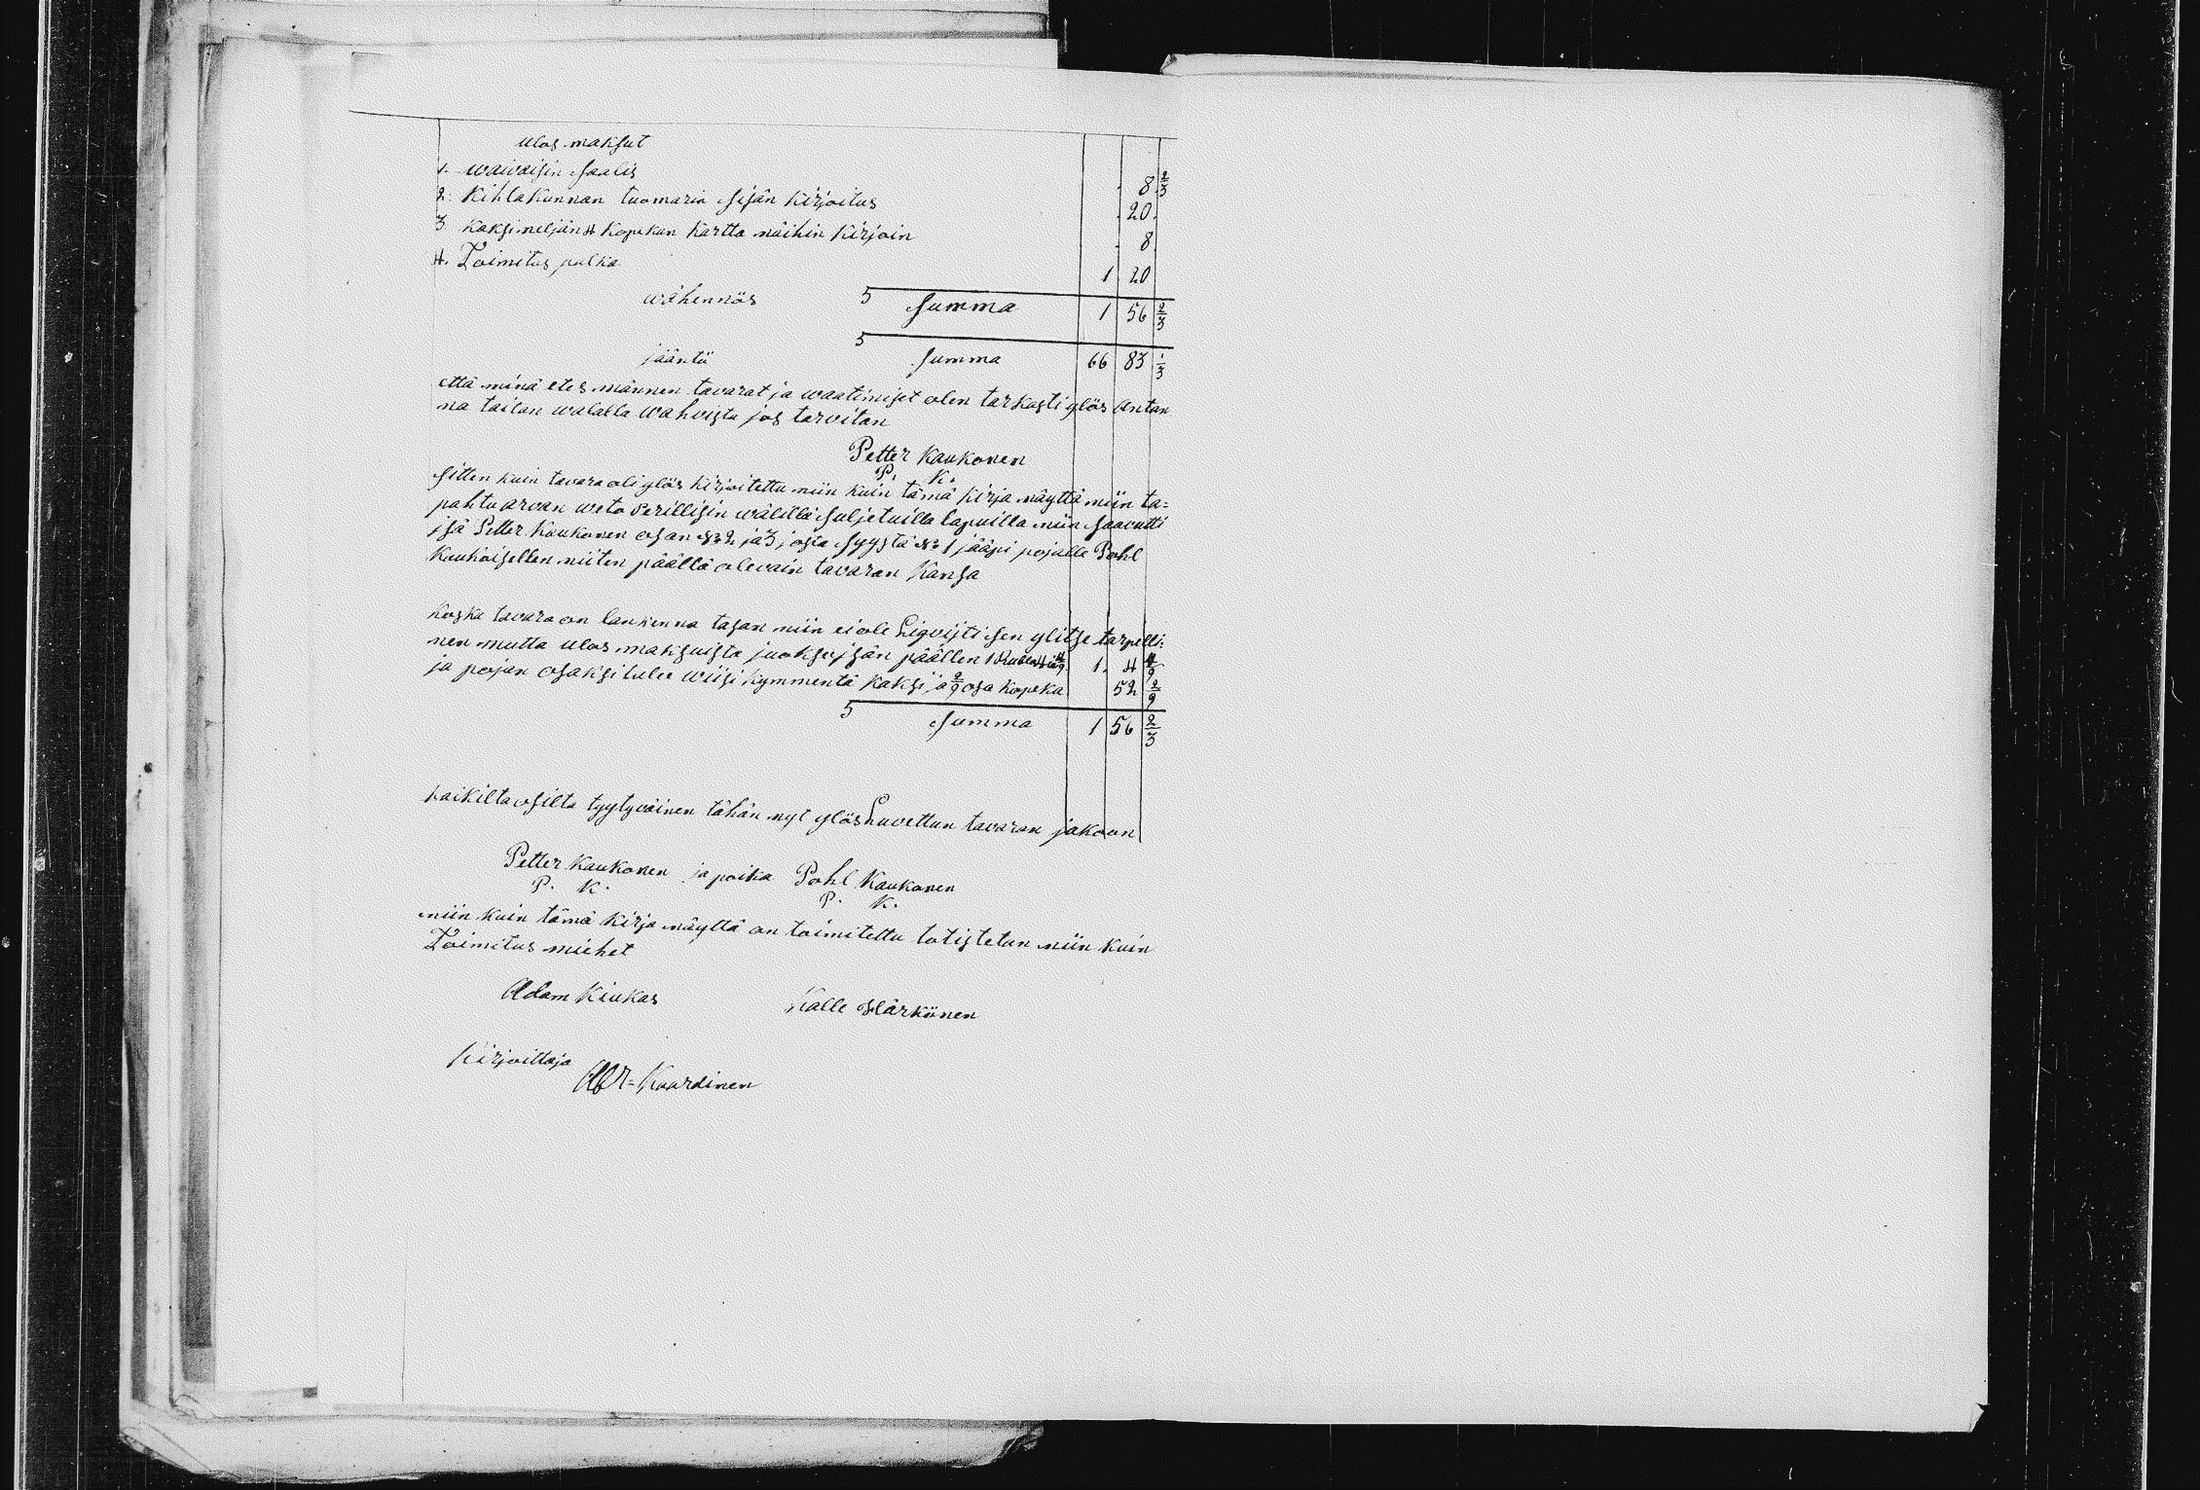 ulos maksut
1. waivaisin saalis 8 2/3
2. Kihlakunnan tuomarin sisän kirjoitus 20
3. Kaksi neljän 4 Kopekan kartta näihin kirjoin 8
4. Toimitus palka 1 20
wähennös 5 summa 1 56 2/3
jääntö 5 summa 66 83 1/3
että minä etes männen tavarat ja waatimiset olen tarkasti ylös antan
na taitan walalla wahvista jos tarvitan
Petter Kaukonen
P. K.
sitten kuin tavara oli ylös kirjoitettu niin kuin tämä kirja näyttä niin ta=
pahtu arvan weto Perillisin wälillä suljetuilla lapuilla niin saavutti
isä Petter Kaukonen osan No 2 ja 3 josta syystä No 1 jääpi pojalle Pohl
Kaukoisellen niiten päällä olevain tavaran kansa
koska tavara on lankenna tasan niin ei ole Liqvijti sen ylitse tarpelli:
nen mutta ulos maksuista juoksejsän päällen 1 Rubla 4 ia 4/9 1. 4 4/9
ja pojan osaksi tulee wiisi kymmentä kaksi ja 2/9 osa kopeka 52 2/9
5 summa 1 56 2/3
kaikilta osilta tyytyväinen tähän nyt ylös Luvettun tavaran jakoon
Petter Kaukonen ja poika Pohl Kaukonen
P. K. P. K.
niin kuin tämä kirja näyttä on toimitettu totistetan niin kuin
Toimitus miehet
Adam Kiukas Kalle Härkönen
Kirjoittaja
Abr= Kaardinen